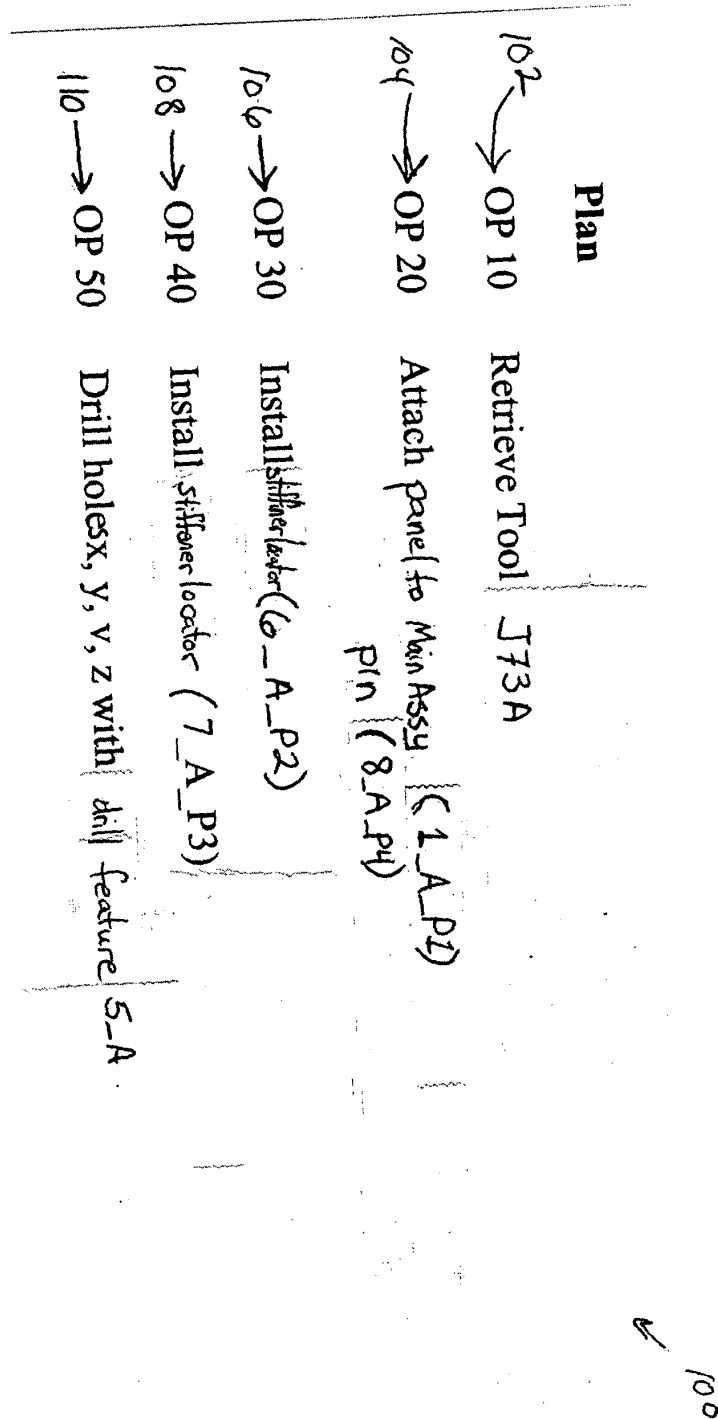 100
Plan
102 → OP 10 Retrieve Tool J73A
104 → OP 20 Attach panel to Main Assy (1_A_P1)
pin (8_A_P4)
106 → OP 30 Install stiffner locator (6_A_P2)
108 → OP 40 Install stiffener locator (7_A_P3)
110 → OP 50 Drill holesx, y, v, z with drill feature 5_A.